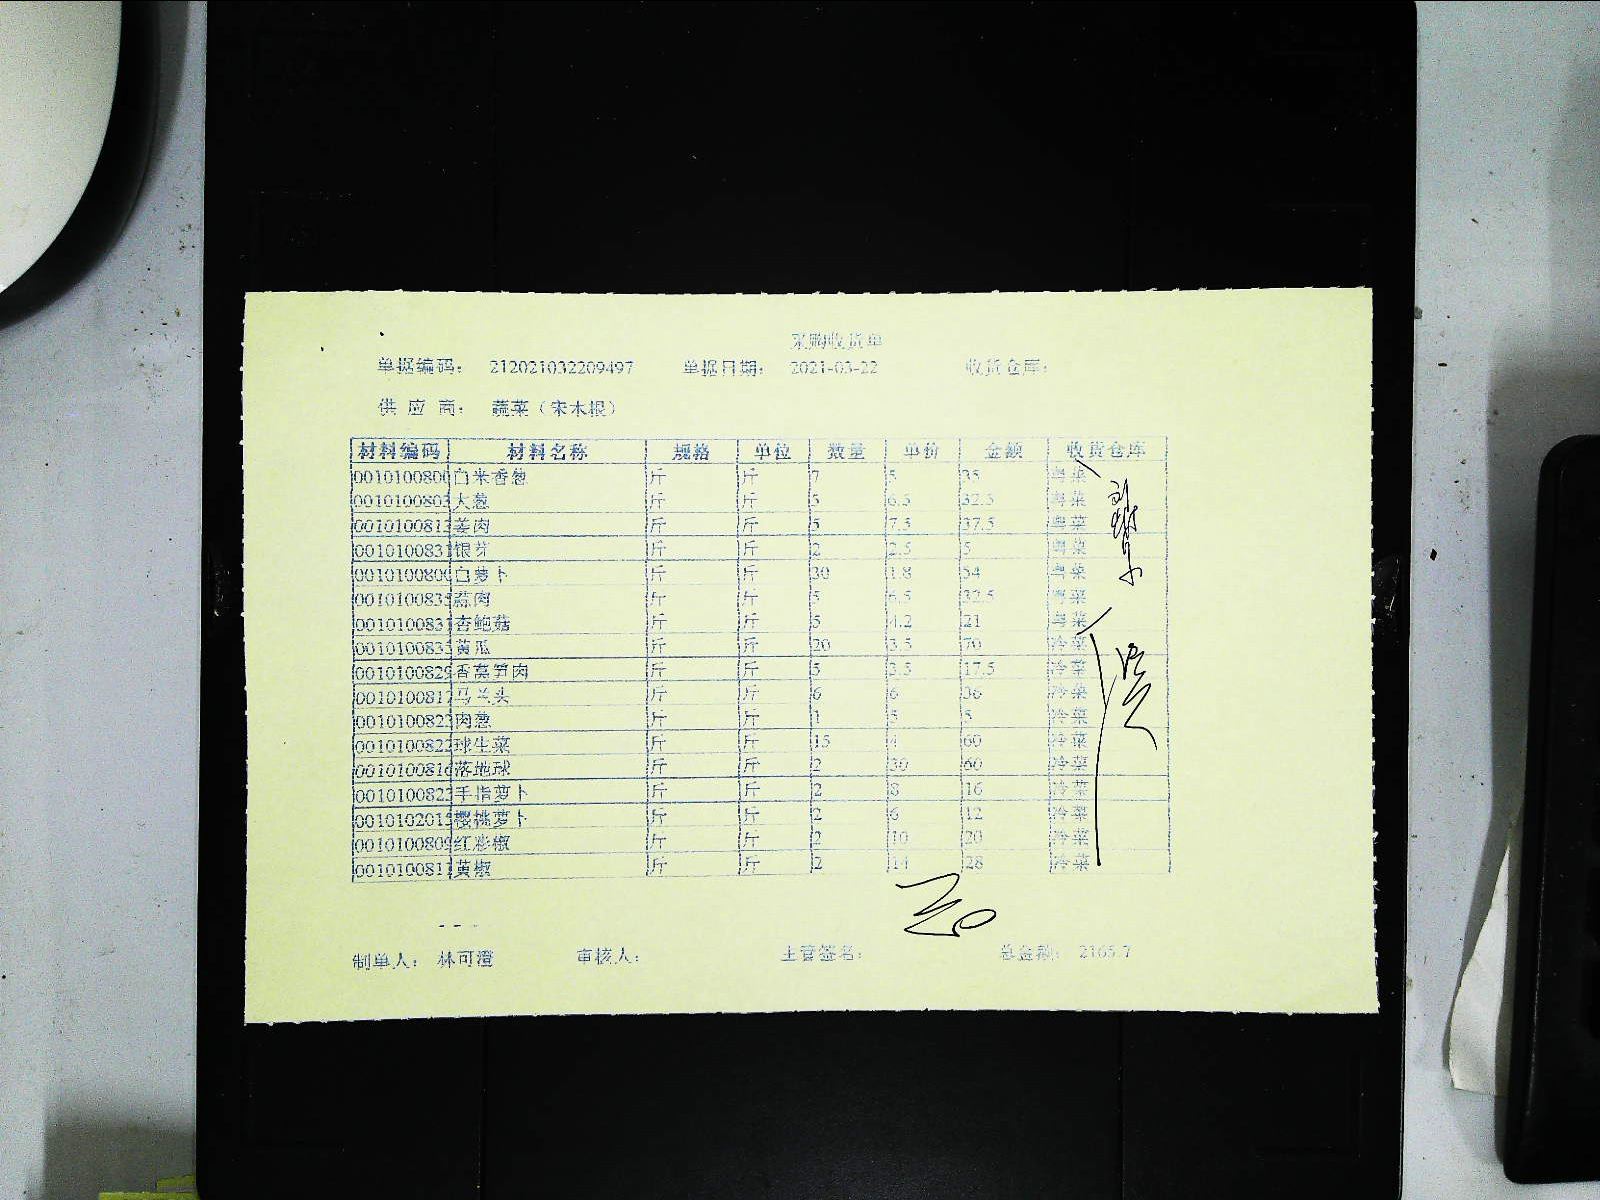 采购收货单
单据编码： 212021032209497 单据日期： 2021-03-22 收货仓库：
供 应 商： 蔬菜（宋木根）
材料编码 材料名称 规格 单位 数量 单价 金额 收货仓库
0010100800 白米香葱 斤 斤 7 5 35 粤菜
0010100803 大葱 斤 斤 5 6.5 32.5 粤菜
0010100813 姜肉 斤 斤 5 7.5 37.5 粤菜
0010100831 银芽 斤 斤 2 2.5 5 粤菜
0010100800 白萝卜 斤 斤 30 1.8 54 粤菜
0010100835 蒜肉 斤 斤 5 6.5 32.5 粤菜
0010100831 杏鲍菇 斤 斤 5 4.2 21 粤菜
0010100835 黄瓜 斤 斤 20 3.5 70 冷菜
0010100829 香莴笋肉 斤 斤 5 3.5 17.5 冷菜
0010100817 马兰头 斤 斤 6 6 36 冷菜
0010100823 肉葱 斤 斤 1 5 5 冷菜
0010100822 球生菜 斤 斤 15 4 60 冷菜
0010100816 落地球 斤 斤 2 30 60 冷菜
0010100822 手指萝卜 斤 斤 2 8 16 冷菜
0010102015 樱桃萝卜 斤 斤 2 6 12 冷菜
0010100809 红彩椒 斤 斤 2 10 20 冷菜
0010100811 黄椒 斤 斤 2 14 28 冷菜
制单人： 林可澄 审核人： 主管签名： 总金额： 2165.7